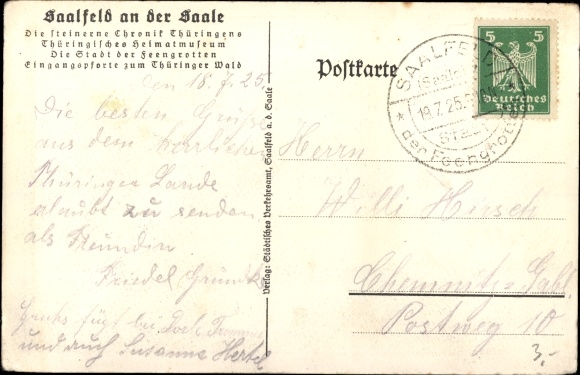 Saalfeld an der Saale
Die steinerne Chronik Thüringens
Thüringisches Heimatmuseum
Die Stadt der Feengrotten
Eingangspforte zum Thüringer Wald
den 18.7.25.
Die besten Grüße
aus dem herrlichen
Thüringer Lande
erlaubt zu senden
als Freundin
Friedel
Gruß fügt bei
und auch Susanne Hertel
Verlag: Städtisches Verkehrsamt, Saalfeld a. d. Saale
Postkarte
SAALFELD
(Saale)
19.7.25.
Stadt
der Feengrotten
5 5
Deutsches
Reich
Herrn
Willi Hirsch
Chemnitz-Gabl.
Postweg 10
3,-